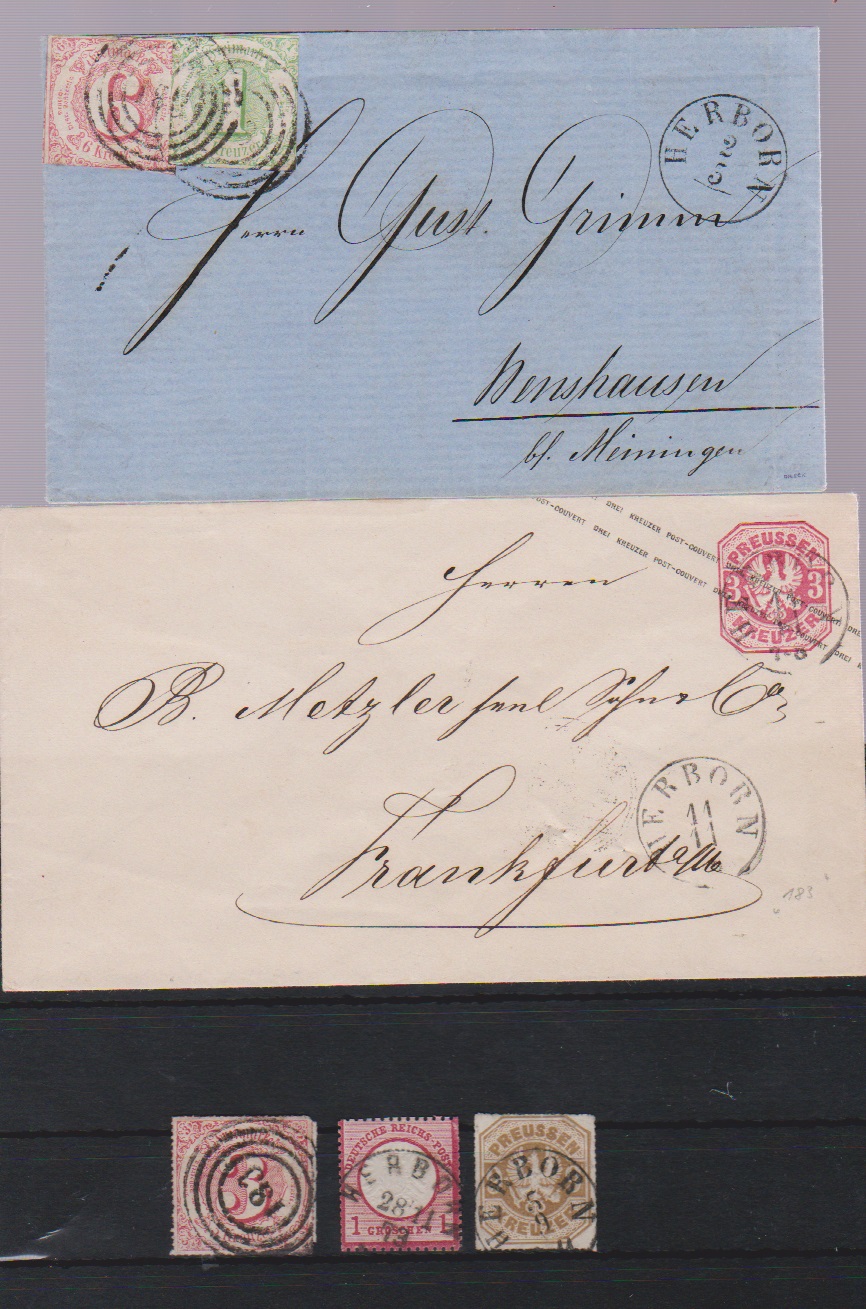 6
1
6 Kreuzer
HERBORN
Herrn Gust. Grimm
Benshausen
bf. Meiningen
DREI KREUZER POST-COUVERT DREI KREUZER POST-COUVERT
DREI KREUZER POST-COUVERT DREI KREUZER POST-COUVERT
PREUSSEN
3 3
KREUZER
Herren
B. Metzler seel Sohn & Co.
Frankfurt a/M
HERBORN
11
11
183
3
187
DEUTSCHE REICHS-POST
1 GROSCHEN 1
HERBORN
28 11
73
PREUSSEN
KREUZER
HERBORN
8
9